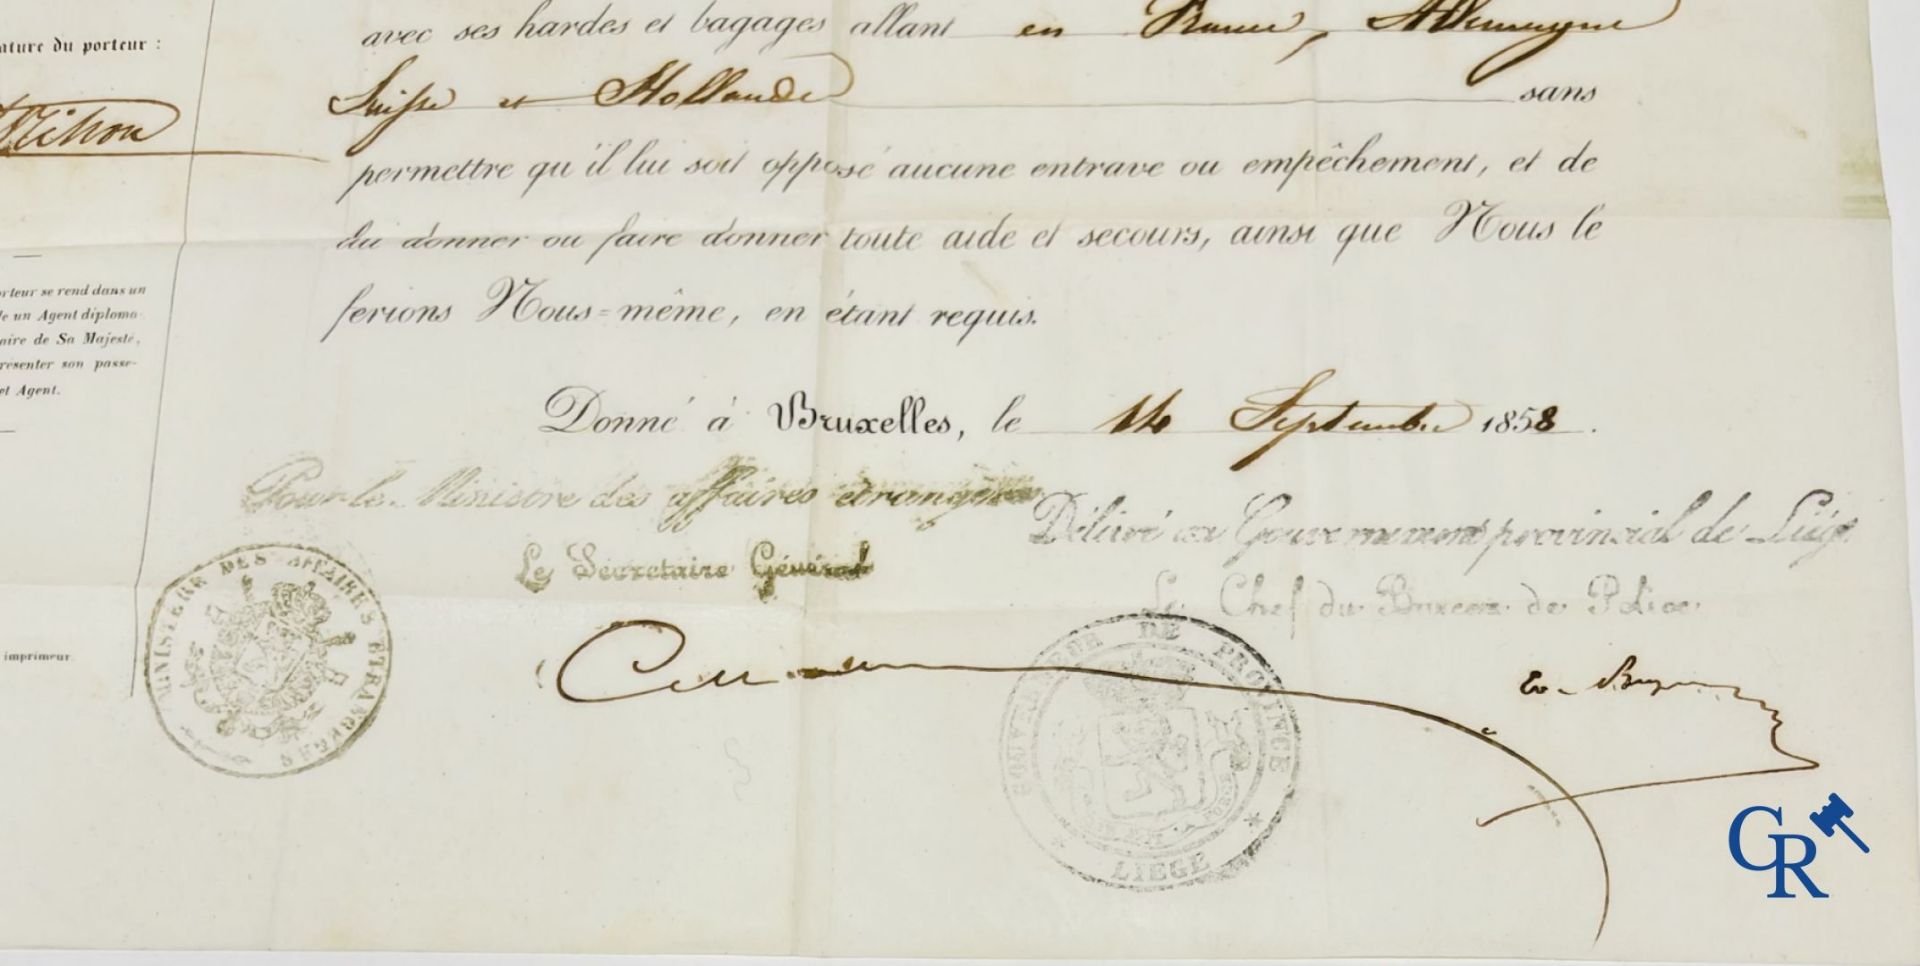 avec ses hardes et bagages allant en France, Allemagne
Suisse et Hollande sans
permettre qu'il lui soit opposé aucune entrave ou empêchement, et de
lui donner ou faire donner toute aide et secours, ainsi que Nous le
ferions Nous=même, en étant requis.
Donné à Bruxelles, le 14 Septembre 1858.
Pour le Ministre des affaires étrangères
Le Secrétaire Général
Délivré au Gouvernement provincial de Liége
Le Chef du Bureau de Police
ature du porteur :
orteur se rend dans un
le un Agent diploma-
aire de Sa Majesté,
résenter son passe-
et Agent.
imprimeur
MINISTERE DES AFFAIRES ETRANGERES
GOUVERNEUR DE PROVINCE
LIEGE
CR